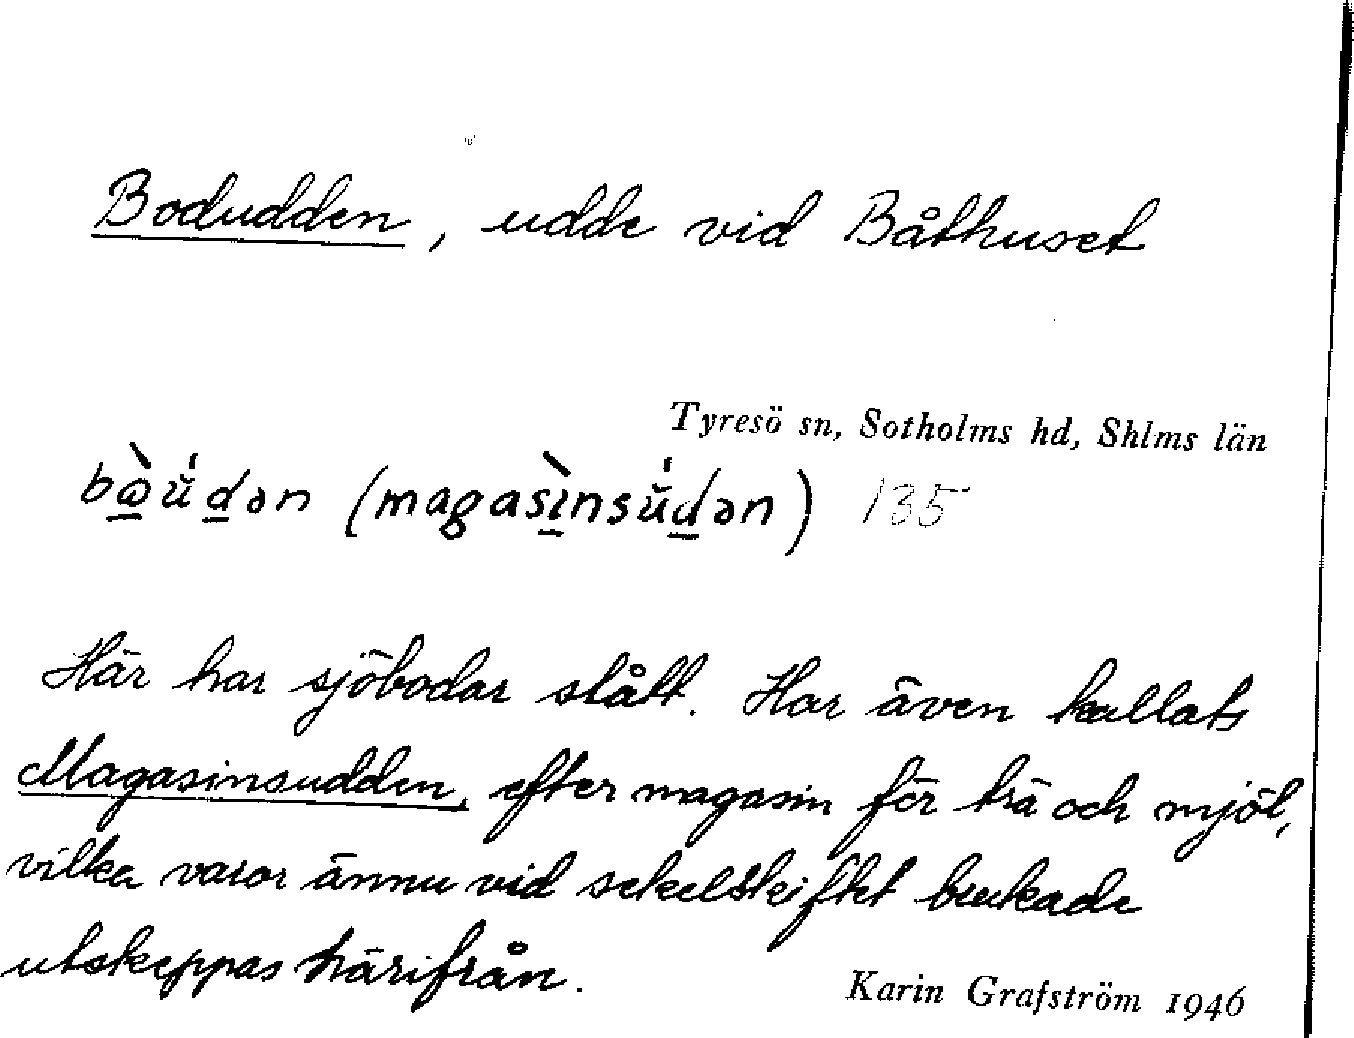 Bodudden, udde vid Båthuset
Tyresö sn, Sotholms hd, Shlms län
bɷ̲̀ŭ́d̲ən (magasì̲nsŭ́d̲ən) 135
Här har sjöbodar stått. Har även kallats
Magasinsudden, efter magasin för trä och mjöl,
vilka varor ännu vid sekelskiftet brukade
utskeppas härifrån.
Karin Grafström 1946